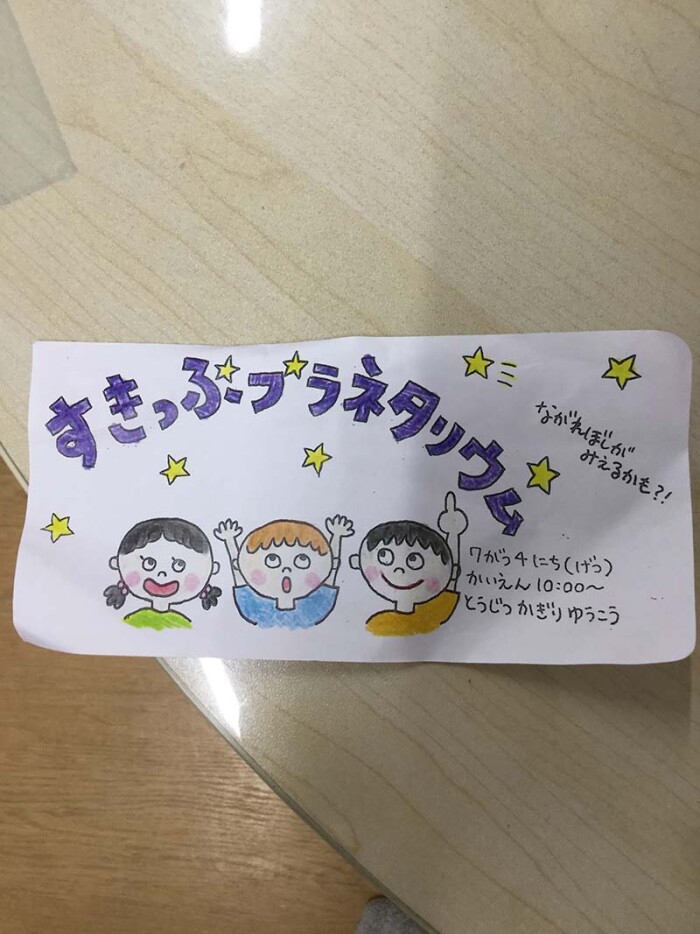 すきっぷ・プラネタリウム
ながれぼしが
みえるかも?!
7がつ4にち(げつ)
かいえん10:00〜
とうじつかぎりゆうこう